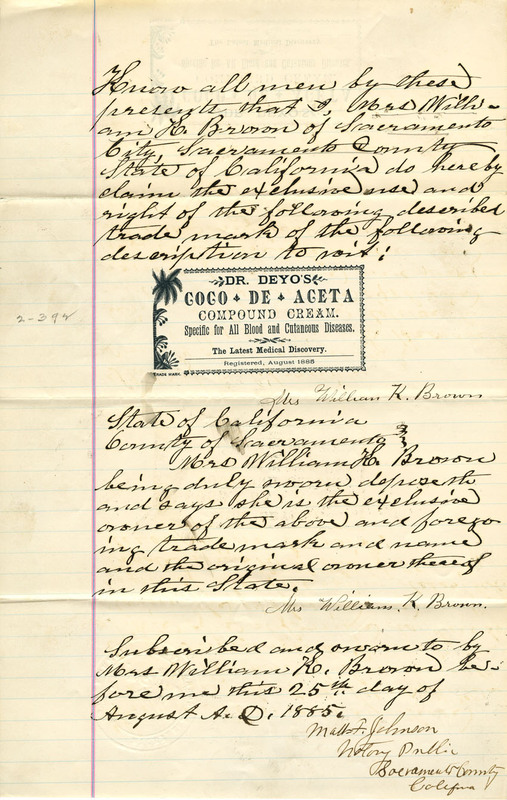 Know all men by these
presents that I, Mrs Willi-
am K. Brown of Sacramento
City, Sacramento County
State of California do hereby
claim the exclusive use and
right of the following described
trade mark of the following
description to wit:
DR. DEYO'S
COCO DE ACETA
COMPOUND CREAM.
Specific for All Blood and Cutaneous Diseases.
The Latest Medical Discovery.
Registered, August 1885
TRADE MARK.
2-392
Mrs William K. Brown
State of California
County of Sacramento
Mrs William K. Brown
being duly sworn deposeth
and says she is the exclusive
owner of the above and forego
ing trade mark and name
and the original owner thereof
in this State.
Mrs William. K. Brown.
Subscribed and sworn to by
Mrs William K. Brown be-
fore me this 25th day of
August A.D. 1885.
Matt F. Johnson
Notary Public
Sacramento County